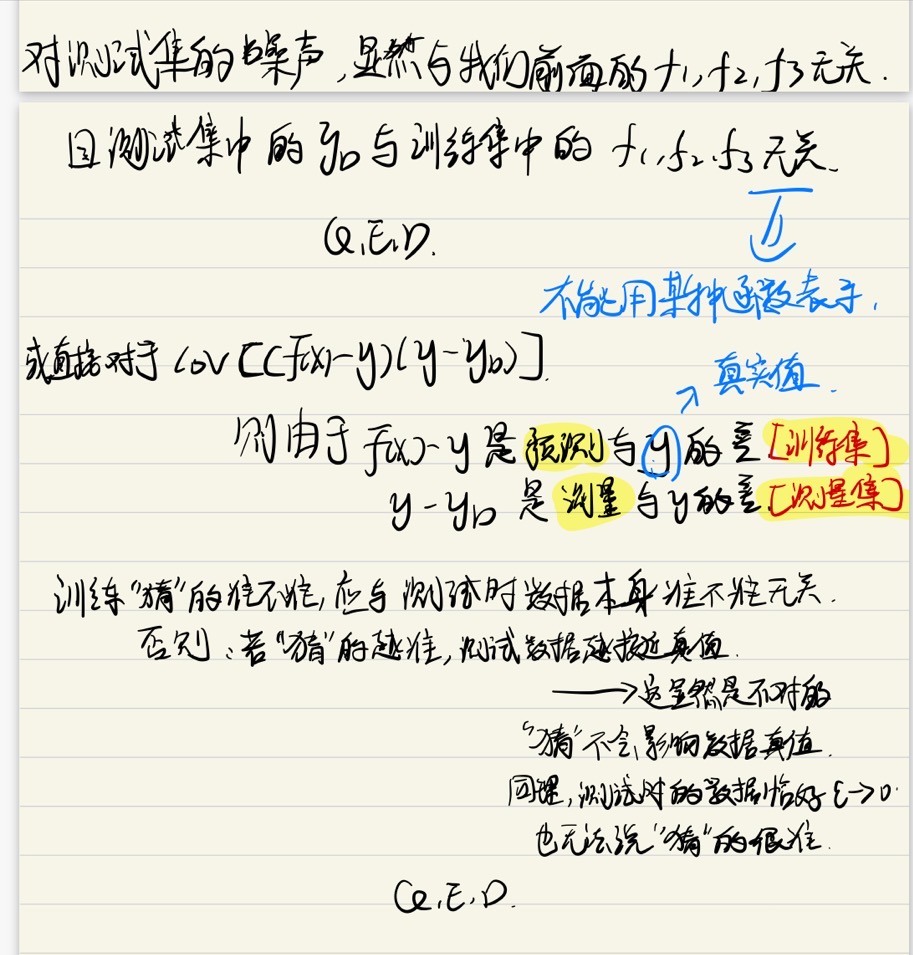 对测试集的噪声,显然与我们前面的 f1, f2, f3 无关.
且测试集中的 yD 与训练集中的 f1, f2, f3 无关.
Q.E.D.
不能用某种函数表示.
或直接对于 Cov[(f(x)-y)(y-yD)].
真实值.
则由于 f(x)-y 是预测与y的差[训练集]
y-yD 是测量与y的差[测量集]
训练“猜”的准不准,应与测试时数据本身准不准无关.
否则:若“猜”的越准,测试数据越接近真值.
→这显然是不对的
“猜”不会影响数据真值.
同理,测试时的数据恰好 ε→0.
也无法说“猜”的很准.
Q.E.D.